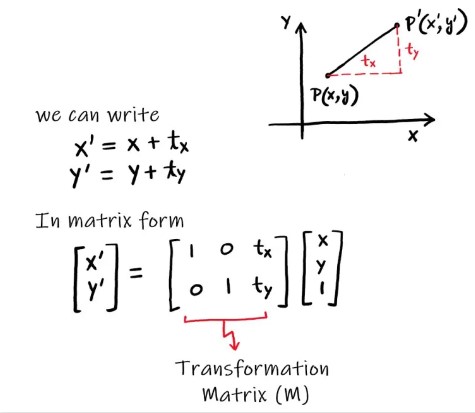 Y
P'(x',y')
tx
ty
P(x,y)
X
we can write
x' = x + tx
y' = y + ty
In matrix form
[x' y'] = [1 0 tx 0 1 ty] [x y 1]
Transformation
Matrix (M)